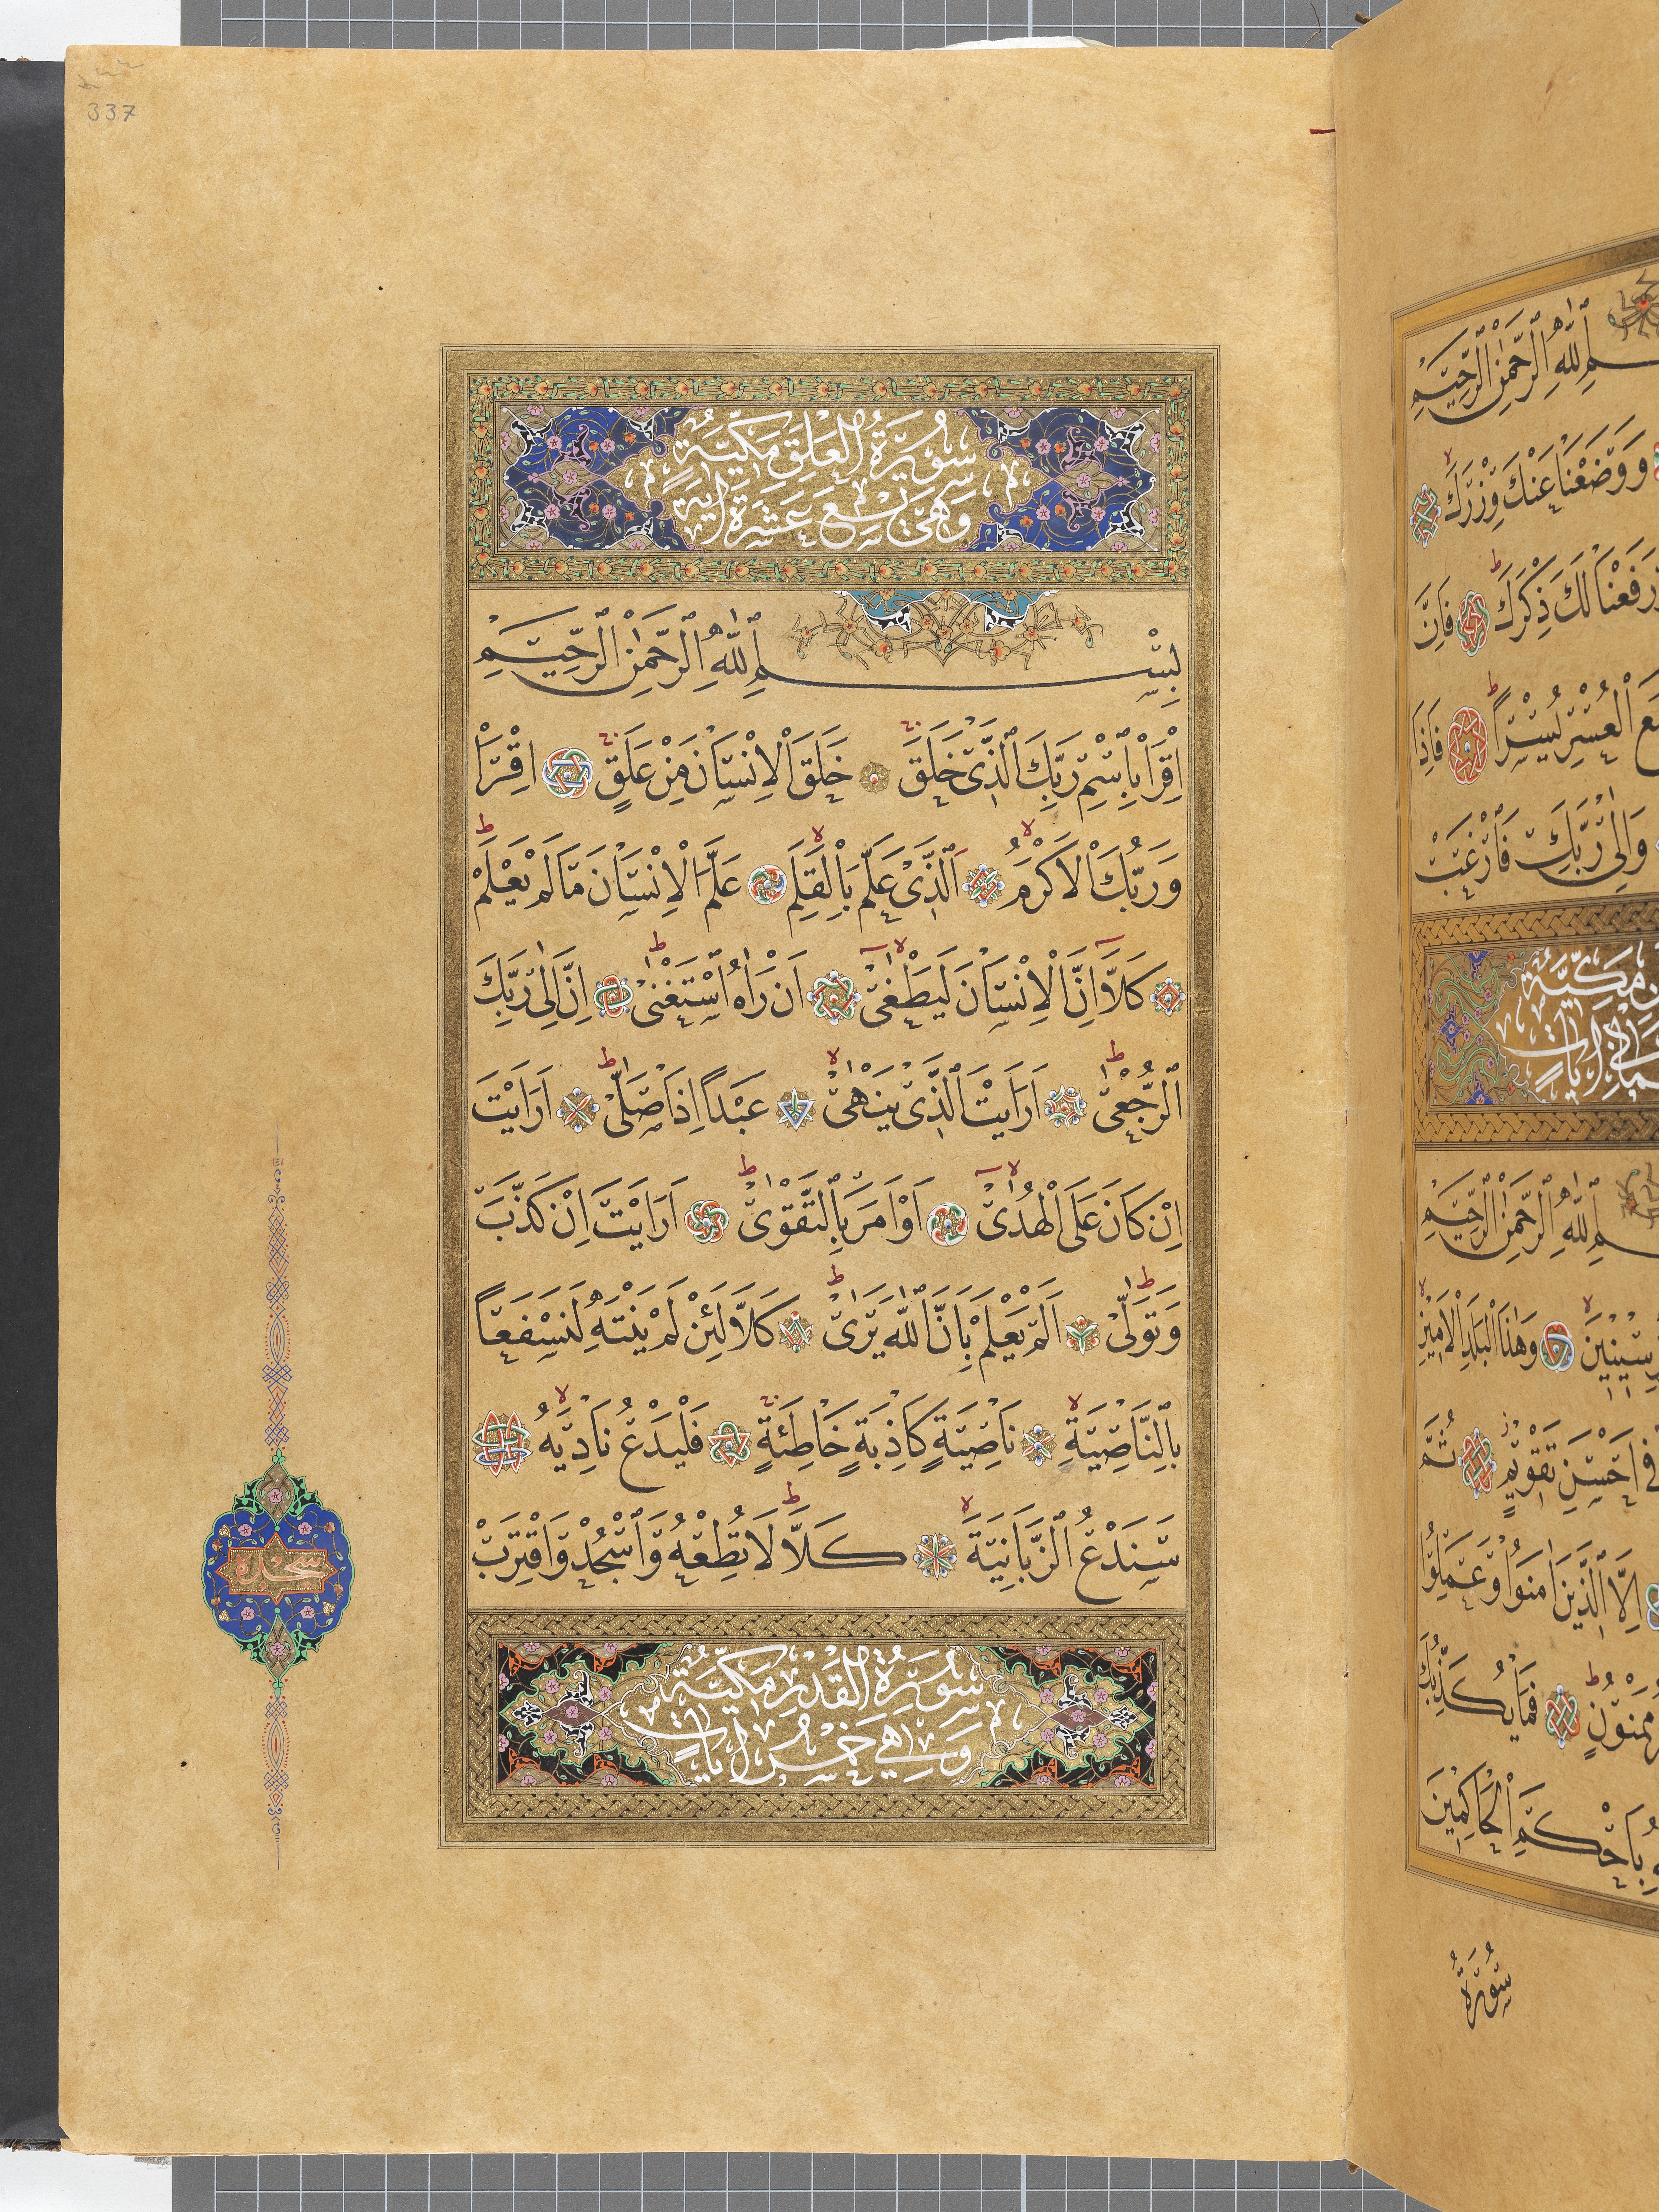 337
سُورَةُ الْعَلَقِ مَكِّيَّةٌ
وَهِيَ تِسْعَ عَشَرَةَ اٰيَةً
بِسْمِ اللّٰهِ الرَّحْمٰنِ الرَّحِيمِ
اِقْرَاْ بِاسْمِ رَبِّكَ الَّذِى خَلَقَ خَلَقَ الْاِنْسَانَ مِنْ عَلَقٍ اِقْرَاْ
وَرَبُّكَ الْاَكْرَمُ اَلَّذِى عَلَّمَ بِالْقَلَمِ عَلَّمَ الْاِنْسَانَ مَا لَمْ يَعْلَمْ
كَلَّا اِنَّ الْاِنْسَانَ لَيَطْغٰى اَنْ رَاٰهُ اسْتَغْنٰى اِنَّ اِلٰى رَبِّكَ
الرُّجْعٰى اَرَاَيْتَ الَّذِى يَنْهٰى عَبْدًا اِذَا صَلّٰى اَرَاَيْتَ
اِنْ كَانَ عَلَى الْهُدٰى اَوْ اَمَرَ بِالتَّقْوٰى اَرَاَيْتَ اِنْ كَذَّبَ
وَتَوَلّٰى اَلَمْ يَعْلَمْ بِاَنَّ اللّٰهَ يَرٰى كَلَّا لَئِنْ لَمْ يَنْتَهِ لَنَسْفَعًا
بِالنَّاصِيَةِ نَاصِيَةٍ كَاذِبَةٍ خَاطِئَةٍ فَلْيَدْعُ نَادِيَهُ
سَنَدْعُ الزَّبَانِيَةَ كَلَّا لَا تُطِعْهُ وَاسْجُدْ وَاقْتَرِبْ
سجده
سُورَةُ الْقَدْرِ مَكِّيَّةٌ
وَهِيَ خَمْسُ اٰيَاتٍ
اللّٰهِ الرَّحْمٰنِ الرَّحِيمِ
وَوَضَعْنَا عَنْكَ وِزْرَكَ
وَرَفَعْنَا لَكَ ذِكْرَكَ فَاِنَّ
مَعَ الْعُسْرِ يُسْرًا فَاِذَا
وَاِلٰى رَبِّكَ فَارْغَبْ
مَكِّيَّةٌ
اٰيَاتٍ
اللّٰهِ الرَّحْمٰنِ الرَّحِيمِ
سِينِينَ وَهٰذَا الْبَلَدِ الْاَمِينِ
فِى اَحْسَنِ تَقْوِيمٍ ثُمَّ
اِلَّا الَّذِينَ اٰمَنُوا وَعَمِلُوا
مَمْنُونٍ فَمَا يُكَذِّبُكَ
بِاَحْكَمِ الْحَاكِمِينَ
سُورَةُ